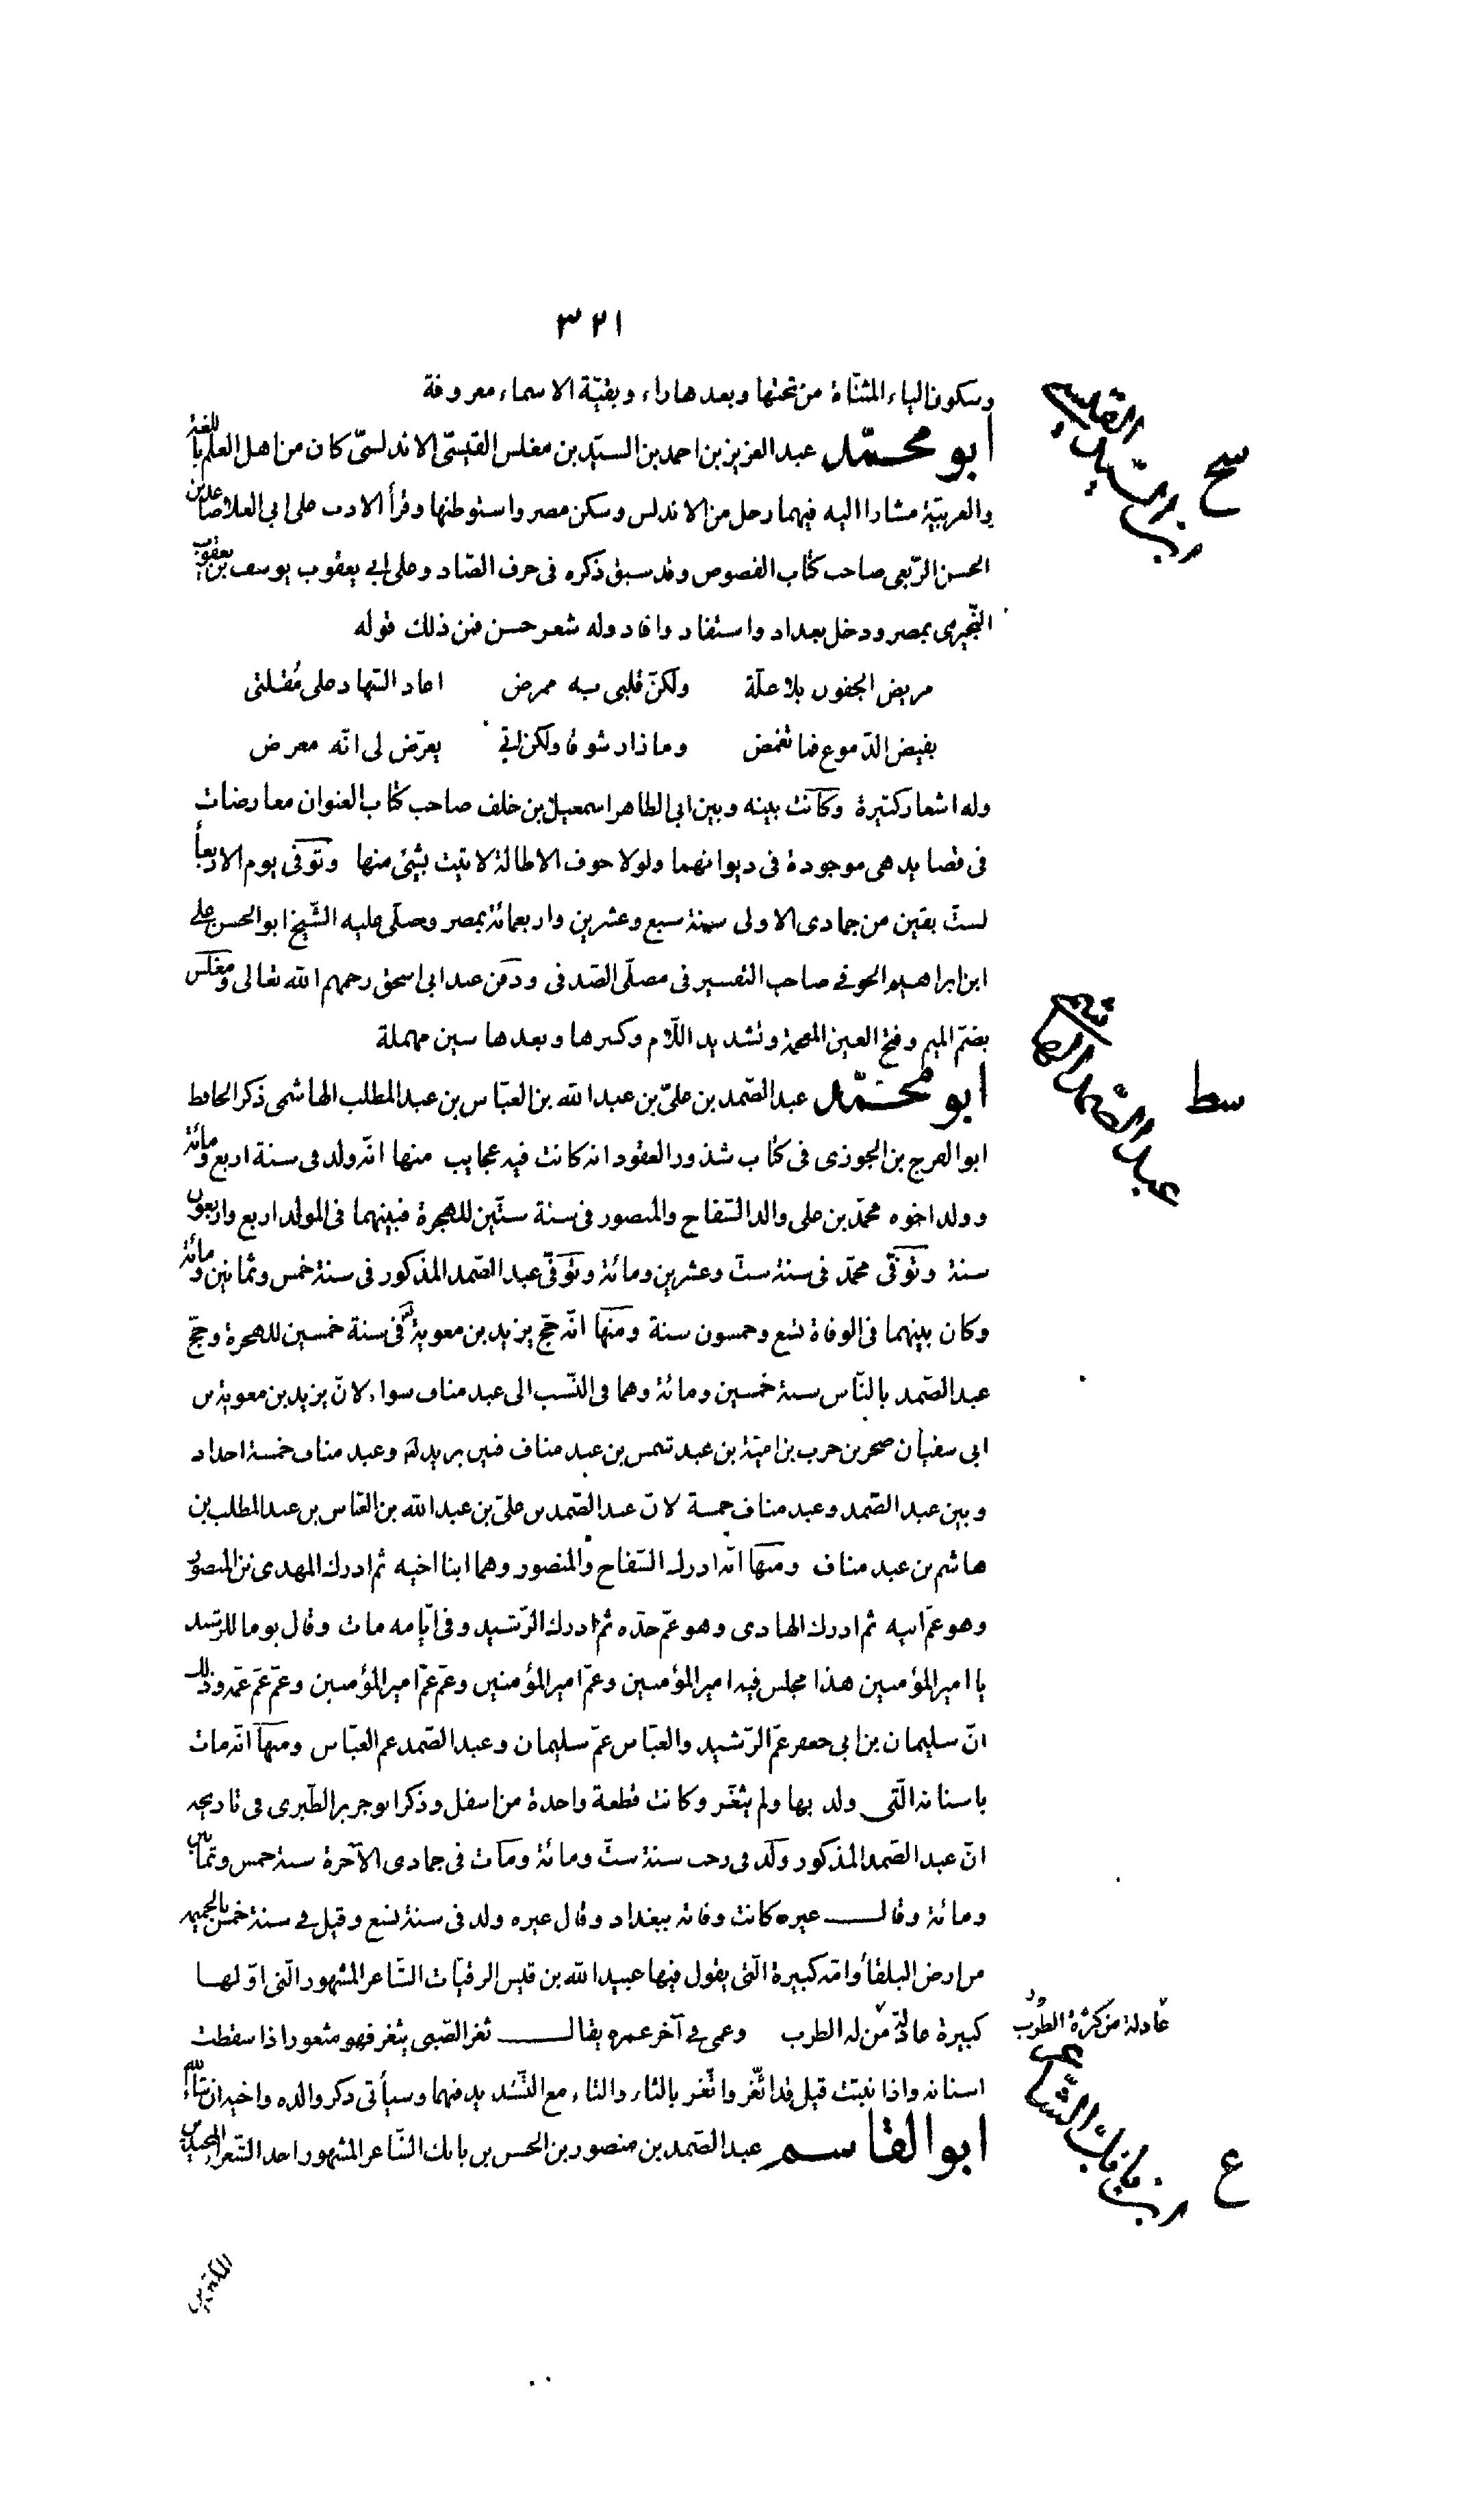 ٣٢١
وسكون الياء المثنّاة من تحتها وبعدها راء وبقيّة الاسماء معروفة
ابن السّيد القيسي
سح
ابو محمّد عبد العزيز بن احمد بن السيّد بن مغلس القيسىّ الاندلسىّ كان من اهل العلم باللغة
والعربيّة مشارا اليه فيهما رحل من الاندلس وسكن مصر واستوطنها وقرأ الادب على ابى العلا صاعد بن
الحسن الرّبعى صاحب كتاب الفصوص وقد سبق ذكره فى حرف الصّاد وعلى ابى يعقوب يوسف بن يعقوب
النّجيرمى بمصر ودخل بغداد واستفاد وافاد وله شعر حسن فمن ذلك قوله
مريض الجفون بلا علّة ولكنّ قلبى به ممرض اعاد السّهاد على مُقلتى
بفيض الدّموع فما تغمض وما زار شوقا ولكن اتى يعرّض لى انّه معرض
وله اشعار كثيرة وكانت بينه وبين ابى الطاهر اسمعيل بن خلف صاحب كتاب العنوان معارضات
فى قصايد هى موجودة فى ديوانهما ولولا خوف الاطالة لاتيت بشئ منها وتوفى يوم الاربعأ
لستّ بقين من جمادى الاولى سنة سبع وعشرين واربعمائة بمصر وصلّى عليه الشّيخ ابو الحسن على
ابن ابراهيم الحوفى صاحب التفسير فى مصلّى الصّدفى ودفن عند ابى اسحق رحمهم الله تعالى ومغلس
بضمّ الميم وفتح الغين المعجمة وتشديد اللّام وكسرها وبعدها سين مهملة
عبد الصّمد الهاشمي
سط
ابو محمّد عبد الصّمد بن علىّ بن عبد الله بن العبّاس بن عبد المطلب الهاشمى ذكر الحافظ
ابو الفرج بن الجوزى فى كتاب شذور العقود انه كانت فيه عجايب منها انّه ولد فى سنة اربع ومائة
وولد اخوه محمّد بن على والد السّفاح والمنصور فى سنة ستّين للهجرة فبينهما فى المولد اربع واربعون
سنة وتوفّى محمّد فى سنة ستّ وعشرين ومائة وتوفّى عبد الصّمد المذكور فى سنة خمس وثمانين ومائة
وكان بينهما فى الوفاة تسع وخمسون سنة ومنها انّه حجّ يزيد بن معوية فى سنة خمسين للهجرة وحجّ
عبد الصّمد بالنّاس سنة خمسين ومائة وهما فى النّسب الى عبد مناف سواء لانّ يزيد بن معوية بن
ابى سفيان صخر بن حرب بن اميّة بن عبد شمس بن عبد مناف فبين يزيد وعبد مناف خمسة اجداد
وبين عبد الصّمد وعبد مناف خمسة لانّ عبد الصّمد بن علىّ بن عبد الله بن العبّاس بن عبد المطلب بن
هاشم بن عبد مناف ومنها انّه ادرك السّفاح والمنصور وهما ابنا اخيه ثم ادرك المهدى بن المنصور
وهو عمّ ابيه ثم ادرك الهادى وهو عمّ جدّه ثم ادرك الرّشيد وفى ايّامه مات وقال يوما للرّشيد
يا امير المؤمنين هذا مجلس فيه امير المؤمنين وعمّ امير المؤمنين وعمّ عمّ امير المؤمنين وعمّ عمّ عمّه وذلك
انّ سليمان بن ابى جعفر عمّ الرّشيد والعبّاس عمّ سليمان وعبد الصّمد عم العبّاس ومنها انّه مات
باسنانه الّتى ولد بها ولم يثغّر وكانت قطعة واحدة من اسفل وذكر ابو جرير الطّبرى فى تاريخه
انّ عبد الصّمد المذكور ولد فى رجب سنة ستّ ومائة ومات فى جمادى الآخرة سنة خمس وثمانين
ومائة وقال غيره كانت وفاته ببغداد وقال غيره ولد فى سنة تسع وقيل فى سنة خمس بالحميمه
من ارض البلقأ وامّه كبيرة الّتى يقول فيها عبيد الله بن قيس الرقيّات الشّاعر المشهور الّتى اوّلها
كبيرة عادلة من له الطرب وعمى فى آخر عمره يقال ثغر الصّبى يثغر فهو مثغور اذا سقطت
عادلة من كثرة الطّرب
اسنانه واذا نبتت قيل قد اثّغر واتّغر بالثاء والتاء مع التّشديد فيهما وسيأتى ذكر والده واخيه ان شاء الله
ابن بابك الشّاعر
ع
ابو القاسم عبد الصّمد بن منصور بن الحسن بن بابك الشّاعر المشهور احد الشّعراء المجيدين
المكثرين